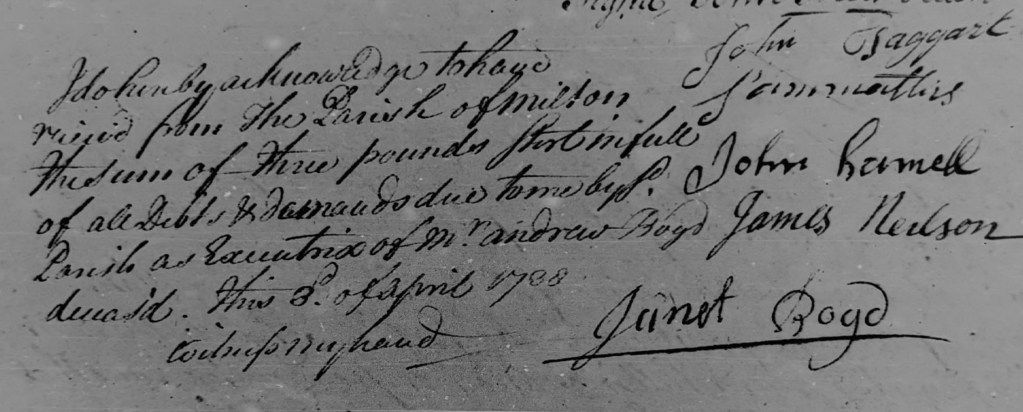 John Taggart
I do hereby acknowledge to have
reciev'd from The Parish of Milton
the sum of three pounds Ster't in full
of all Debts & demands due to me by s'd.
Parish as Executrix of Mr. andrew Boyd
deceas'd. This 3d. of April 1788
witness my hand
Sam mathis
John hamell
James Neilson
Janet Boyd